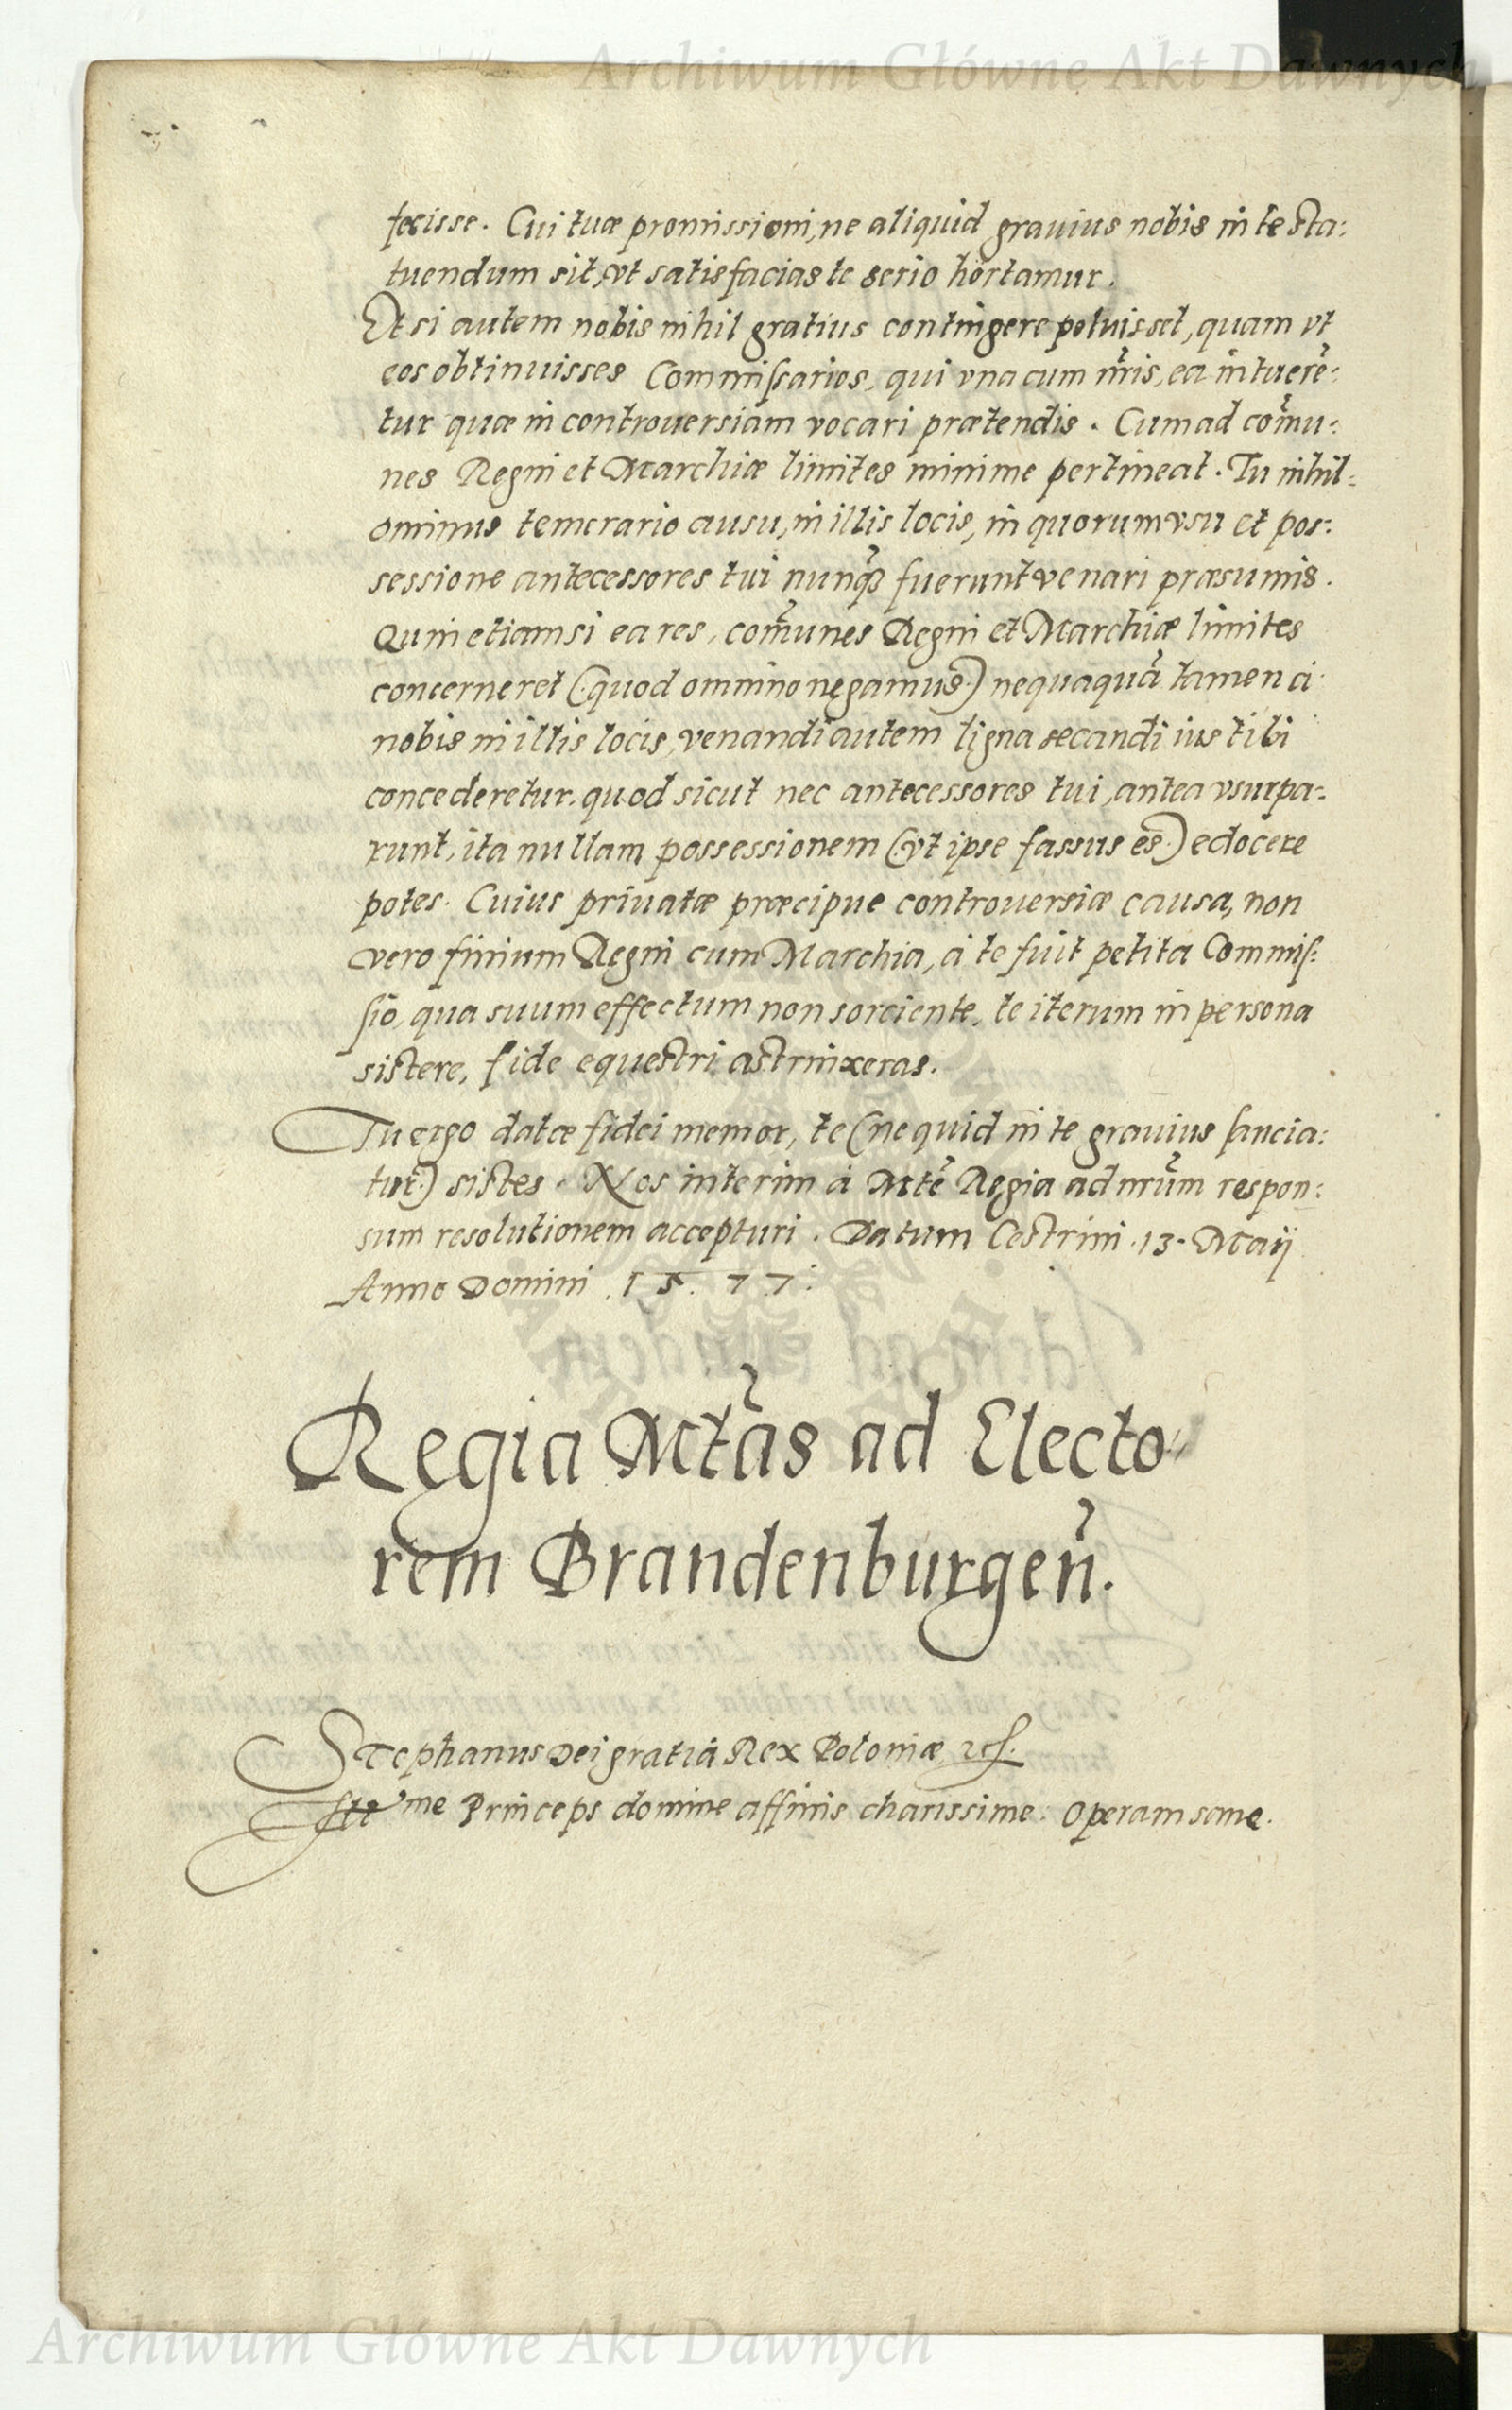 Archiwum Główne Akt Dawnych
fecisse. Cui tuæ promissioni, ne aliquid grauius nobis in te sta:
tuendum sit, vt satisfacias te serio hortamur.
Et si autem nobis nihil gratius contingere potuisset, quam vt
eos obtinuisses Commissarios, qui vna cum nr̃is, ea intuerẽ:
tur quæ in controuersiam vocari prætendis. Cum ad com̃u:
nes Regni et Marchiæ limites minime pertineat. Tu nihil:
ominus temerario ausu, in illis locis, in quorum vsu et pos:
sessione antecessores tui nunq̃ fuerunt venari præsumis.
Quin etiamsi ea res, com̃unes Regni et Marchiæ limites
concerneret (: quod omnino negamus :) nequaquã tamen à
nobis in illis locis, venandi autem ligna secandi ius tibi
concederetur. quod sicut nec antecessores tui, antea vsurpa:
runt, ita nullam possessionem (: vt ipse fassus es :) edocere
potes. Cuius priuatæ præcipue controuersiæ causa, non
vero finium Regni cum Marchia, à te fuit petita Commis:
sio, qua suum effectum non sorciente, te iterum in persona
sistere, fide equestri astrinxeras.
Tu ergo datæ fidei memor, te (: ne quid in te grauius sancia:
tur :) sistes. Nos interim à Mtẽ Regia ad nr̃um respon:
sum resolutionem accepturi. Datum Cestrini .13. Maij
Anno Domini .1577.
Regia Mtãs ad Electo
rem Brandenburgeñ.
Stephanus Dei gratia Rex Poloniæ etc.
Illme Princeps domine affinis charissime. Operam sane.
Archiwum Główne Akt Dawnych